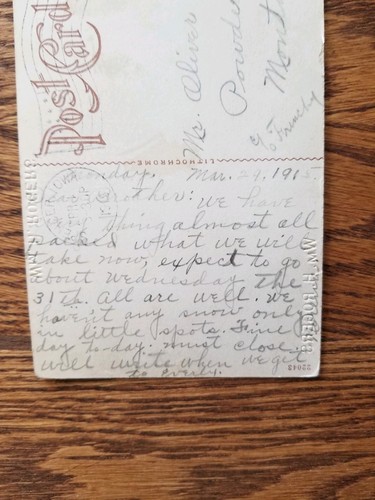 Post Card
Mr. Oliver
Powder
Mont
c/o Frenchy
LITHOCHROME
Monday, Mar. 29, 1915.
Dear Brother: We have
thing almost all
packed what we will
take now, expect to go
about Wednesday the
31th. All are well. We
haven't any snow only
in little spots. Fine
day to-day. must close.
will write when we get
to
22043